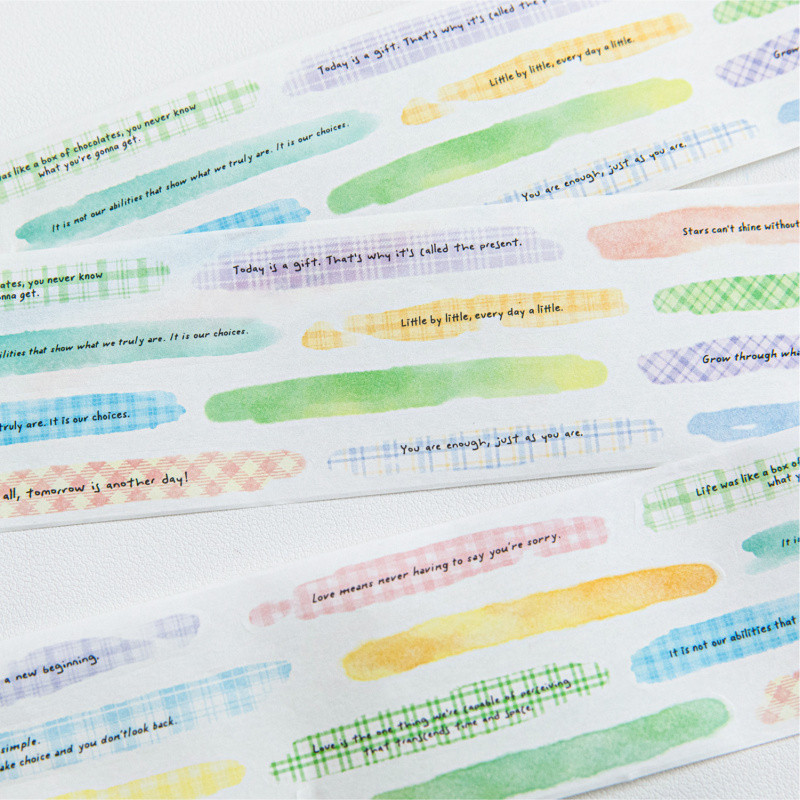 Today is a gift. That's why it's called the p
Little by little, every day a little.
Grow
was like a box of chocolates, you never know
what you're gonna get.
It is not our abilities that show what we truly are. It is our choices.
You are enough, just as you are.
Today is a gift. That's why it's called the present.
Stars can't shine without
ates, you never know
nna get.
Little by little, every day a little.
ilities that show what we truly are. It is our choices.
Grow through wha
truly are. It is our choices.
You are enough, just as you are.
all, tomorrow is another day!
Life was like a box of
what y
Love means never having to say you're sorry.
It is
a new beginning.
It is not our abilities that
simple.
ake choice and you don'tlook back.
Love is the one thing we're capable of perceiving
that transcends time and space.